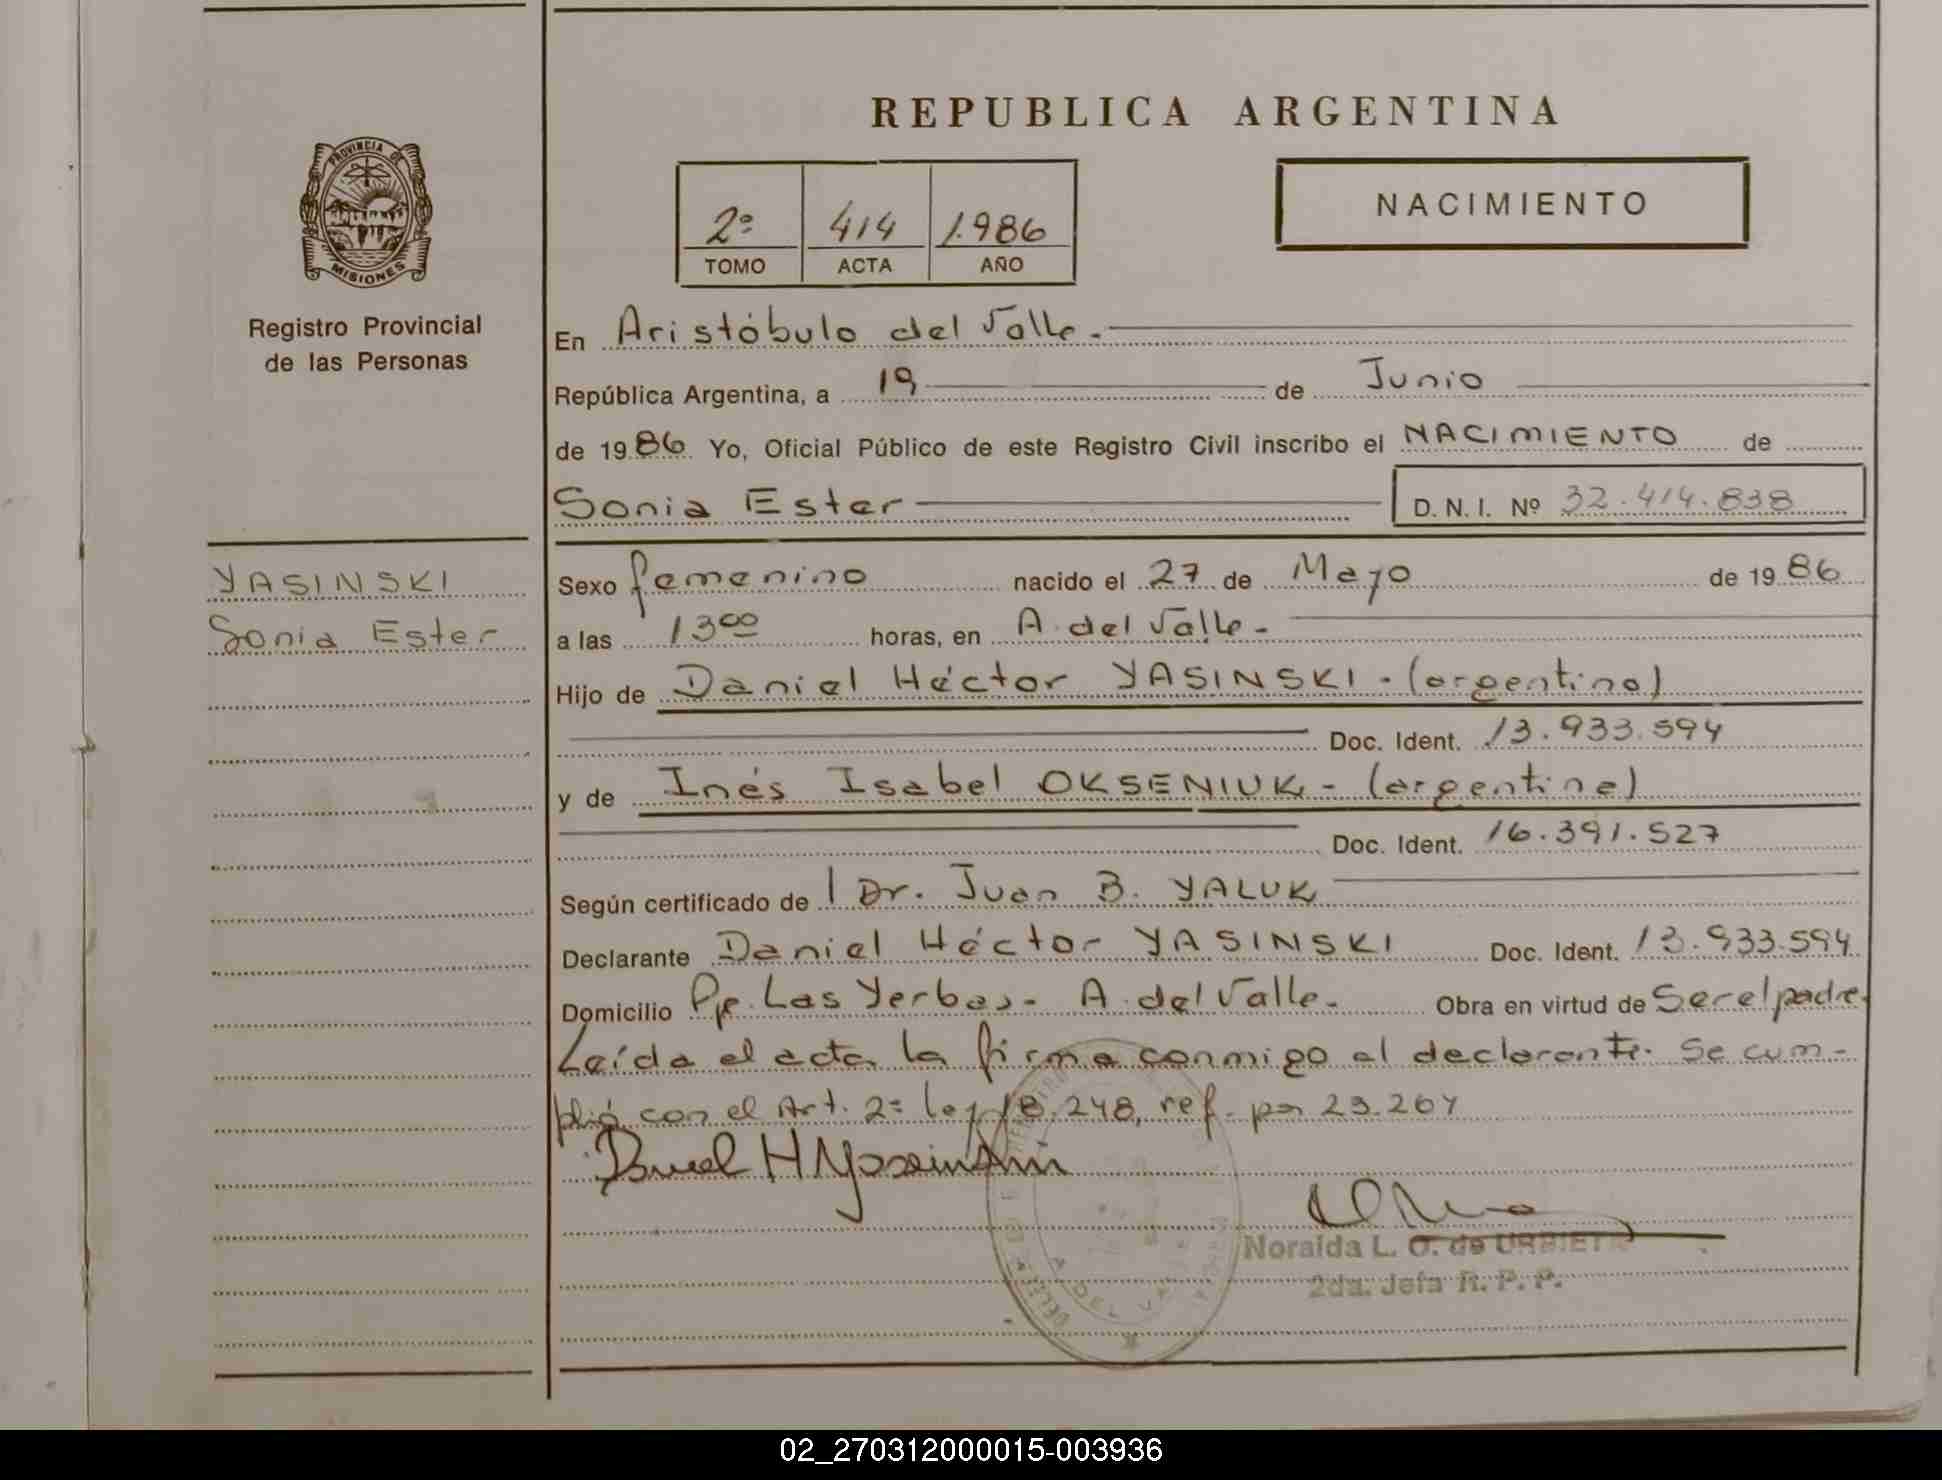 REPUBLICA ARGENTINA
PROVINCIA DE
MISIONES
Registro Provincial
de las Personas
2º 414 1.986
TOMO ACTA AÑO
NACIMIENTO
En Aristóbulo del Valle.-
República Argentina, a 19 de Junio
de 1986 Yo, Oficial Público de este Registro Civil inscribo el NACIMIENTO de
Sonia Ester D. N. I. Nº 32.414.838
YASINSKI
Sonia Ester
Sexo femenino nacido el 27 de Mayo de 1986
a las 13 00 horas, en A. del Valle.-
Hijo de Daniel Héctor YASINSKI.- (argentino)
Doc. Ident. 13.933.594
y de Inés Isabel OKSENIUK.- (argentina)
Doc. Ident. 16.391.527
Según certificado de Dr. Juan B. YALUK
Declarante Daniel Héctor YASINSKI Doc. Ident. 13.933.594
Domicilio Pje. Las Yerbas.- A. del Valle.- Obra en virtud de Ser el padre.
Leída el acta la firma conmigo el declarante. Se cum-
plió con el Art. 2º ley 18.248, ref. por 23.264
Noraida L. O. de URBIETA
2da. Jefa R. P. P.
A. DEL VALLE
02_270312000015-003936